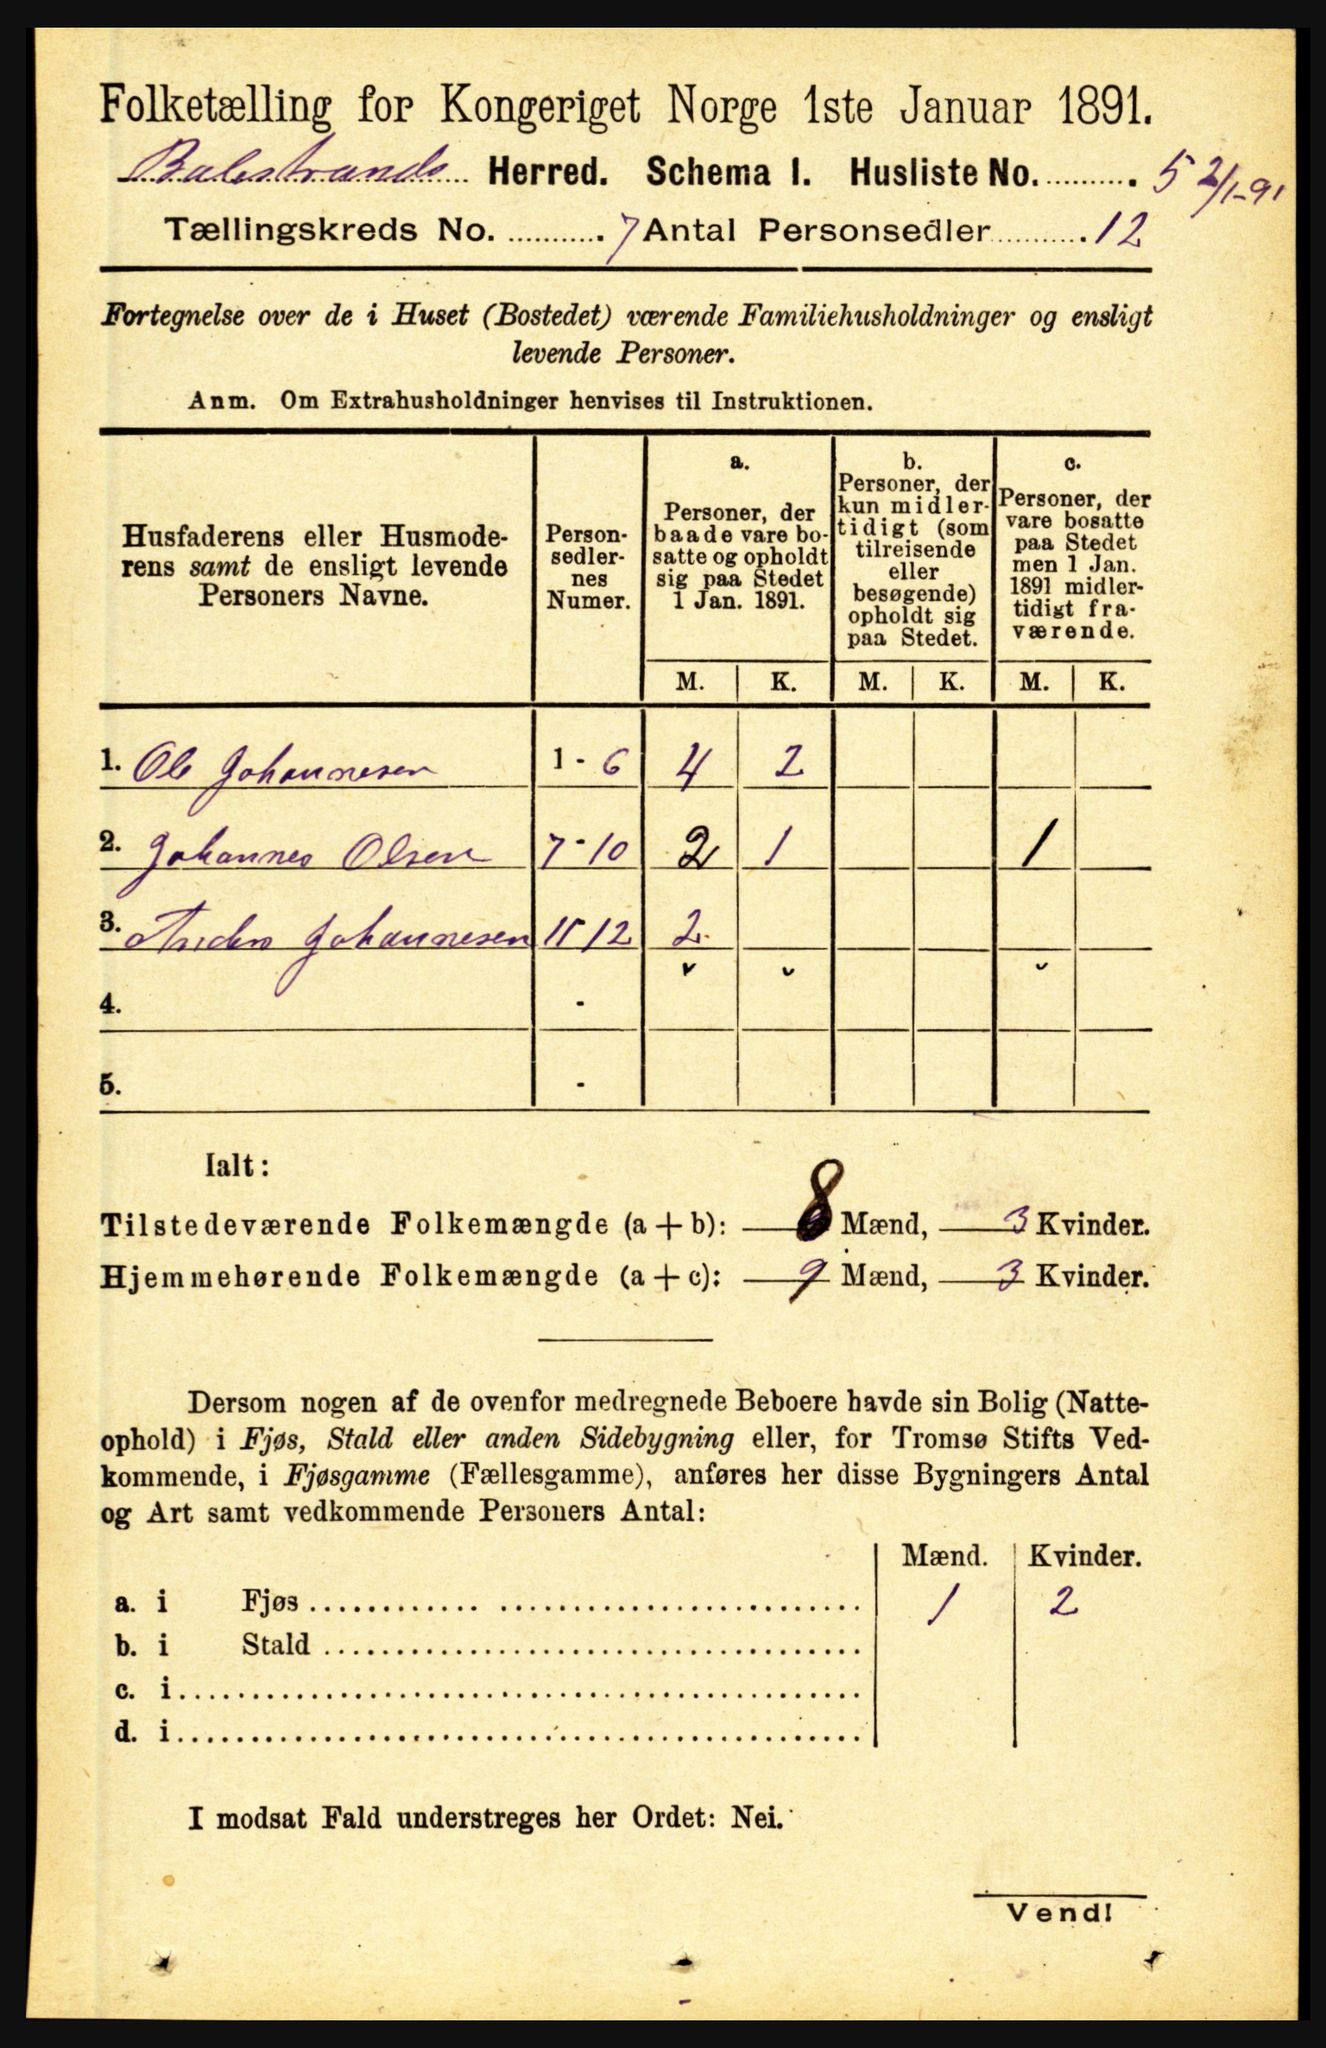 Folketælling for Kongeriget Norge 1ste Januar 1891.
Balestrands Herred. Schema I. Husliste No. 5 2/1-91
Tællingskreds No. 7 Antal Personsedler 12
Fortegnelse over de i Huset (Bostedet) værende Familiehusholdninger og ensligt
levende Personer.
Anm. Om Extrahusholdninger henvises til Instruktionen.
Husfaderens eller Husmode-
rens samt de ensligt levende
Personers Navne.
Person-
sedler-
nes
Numer.
a.
Personer, der
baade vare bo-
satte og opholdt
sig paa Stedet
1 Jan. 1891.
b.
Personer, der
kun midler-
tidigt (som
tilreisende
eller
besøgende)
opholdt sig
paa Stedet.
c.
Personer, der
vare bosatte
paa Stedet
men 1 Jan.
1891 midler-
tidigt fra-
værende.
M. K. M. K. M. K.
1. Ole Johannesen 1 - 6 4 2
2. Johannes Olsen 7 - 10 2 1 1
3. Anders Johannesen 11 12 2
4. -
5. -
Ialt:
Tilstedeværende Folkemængde (a + b): 8 Mænd, 3 Kvinder.
Hjemmehørende Folkemængde (a + c): 9 Mænd, 3 Kvinder.
Dersom nogen af de ovenfor medregnede Beboere havde sin Bolig (Natte-
ophold) i Fjøs, Stald eller anden Sidebygning eller, for Tromsø Stifts Ved-
kommende, i Fjøsgamme (Fællesgamme), anføres her disse Bygningers Antal
og Art samt vedkommende Personers Antal:
Mænd. Kvinder.
a. i Fjøs 1 2
b. i Stald
c. i
d. i
I modsat Fald understreges her Ordet: Nei.
Vend!